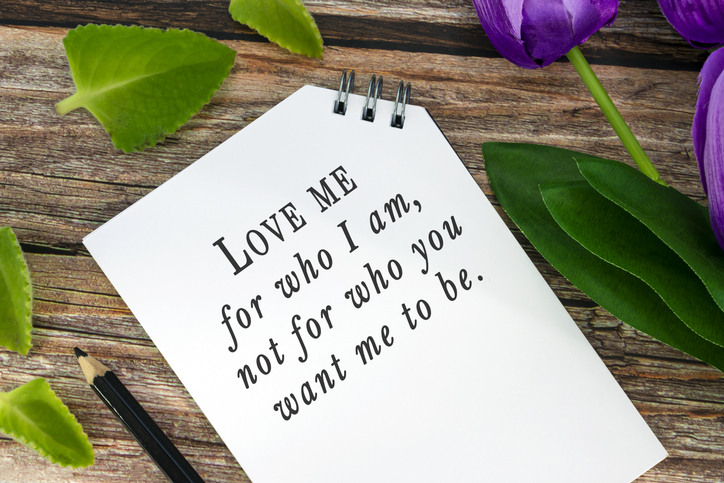 LOVE ME
for who I am,
not for who you
want me to be.